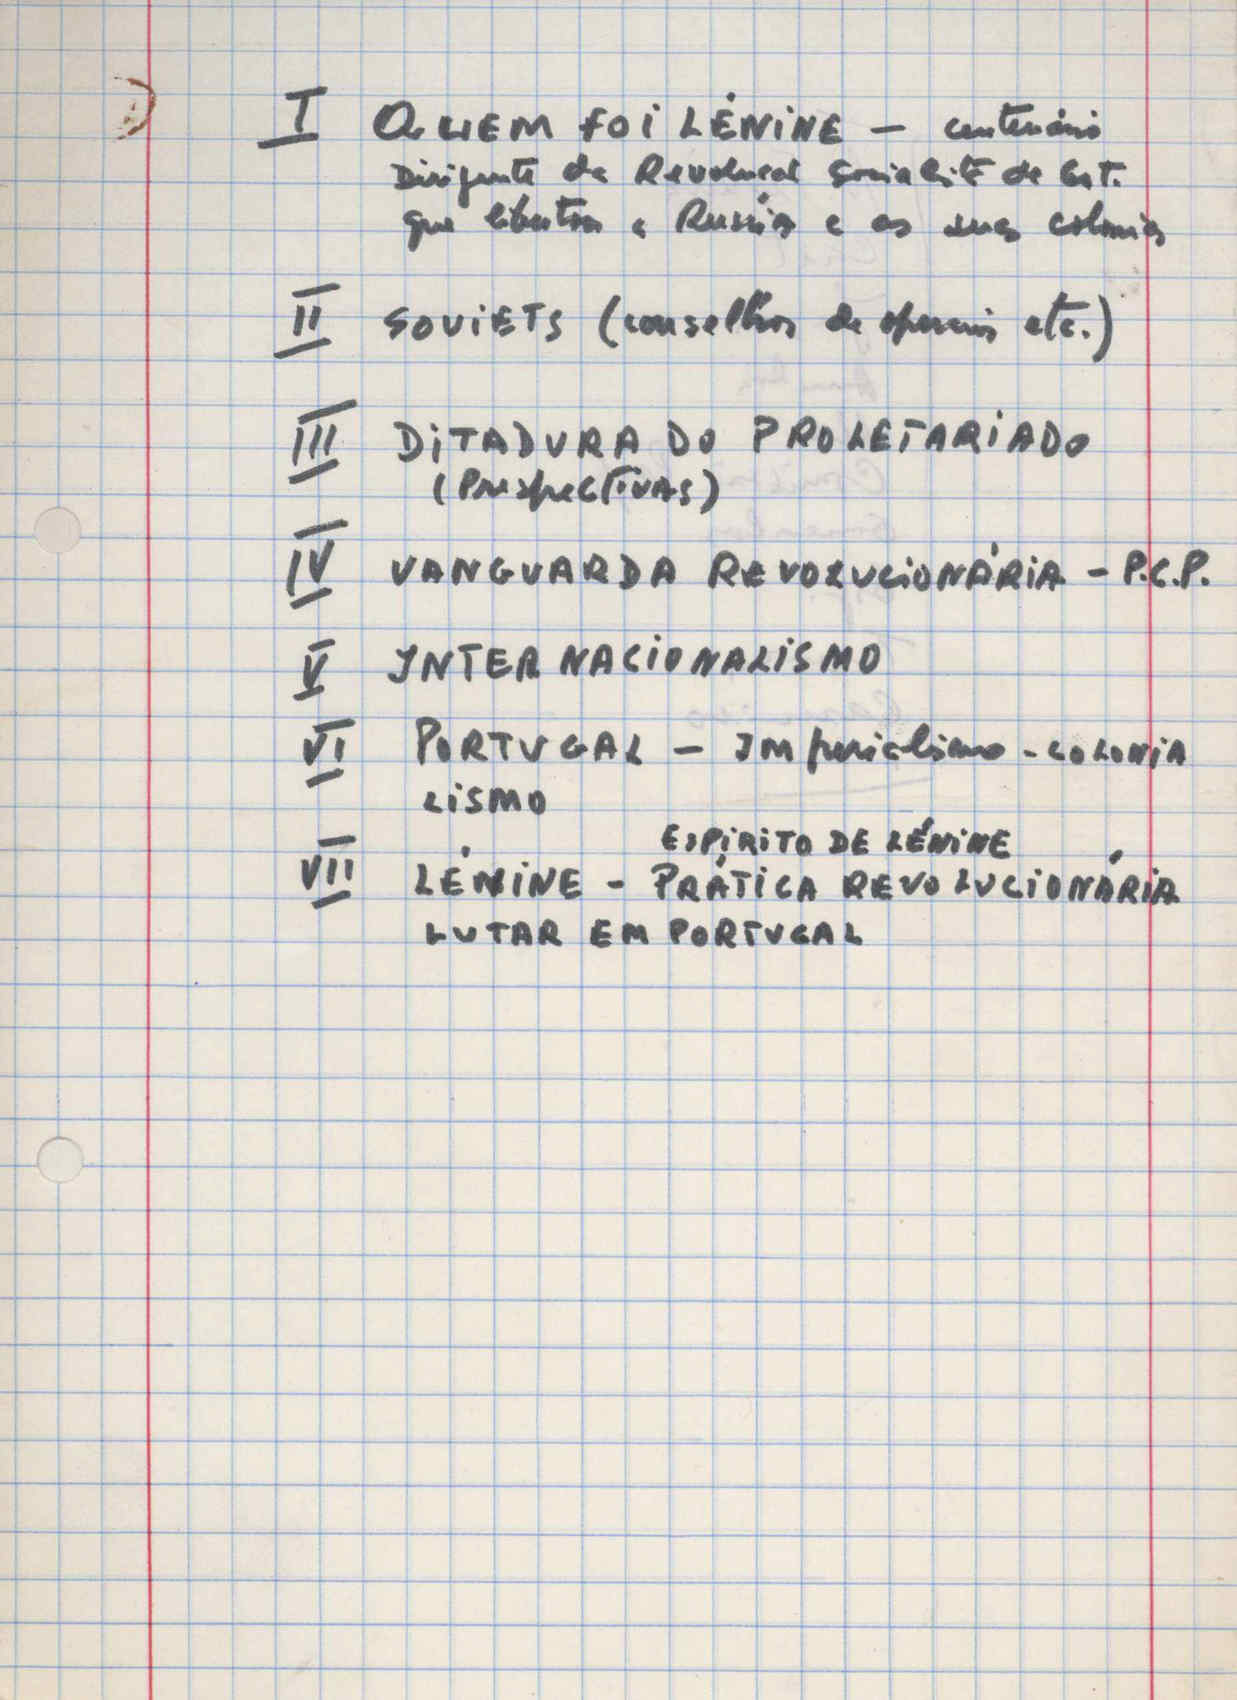 I QUEM FOI LÉNINE – centenário
Dirigente da Revolucao Socialista de Out.
que libertou a Rússia e as suas colonias
II SOVIETS (conselhos de operarios etc.)
III DITADURA DO PROLETARIADO
(PerspecTIVAS)
IV VANGUARDA REVOLUCIONÁRIA – P.C.P.
V INTERNACIONALISMO
VI PORTUGAL – IMperialismo - COLONIA
LISMO
ESPÍRITO DE LÉNINE
VII LÉNINE – PRÁTICA REVOLUCIONÁRIA
LUTAR EM PORTUGAL